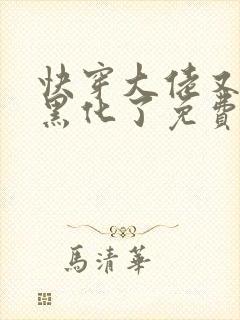 快穿大佬又
黑化了免費
馬清華